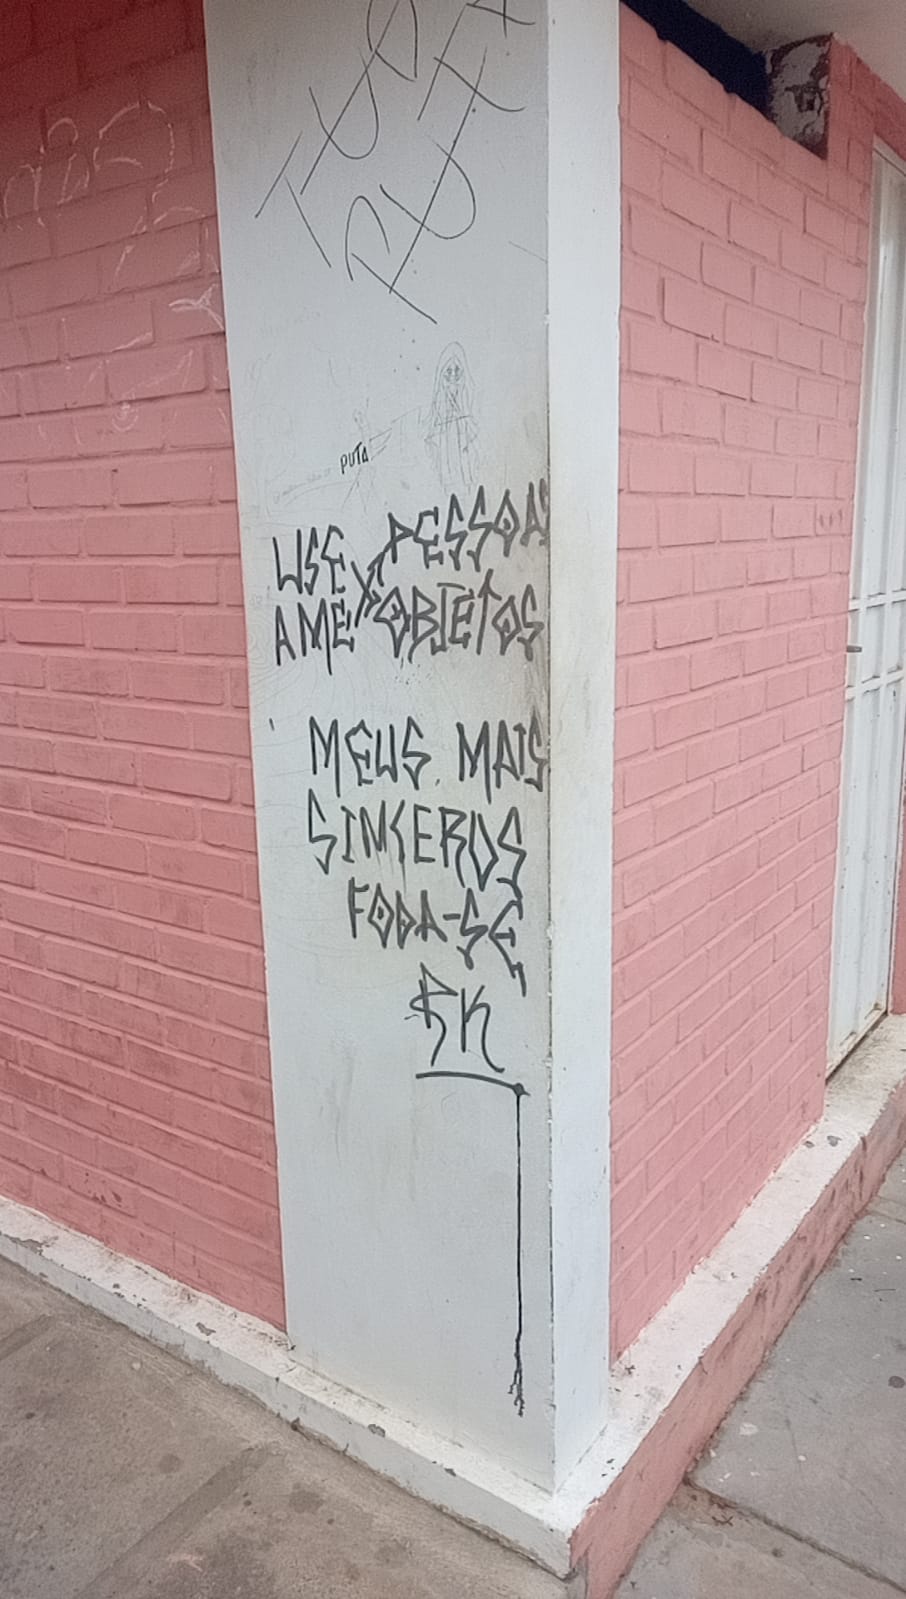 PUTA
USE PESSOAS
AME OBJETOS
MEUS MAIS
SINCEROS
FODA-SE
RK